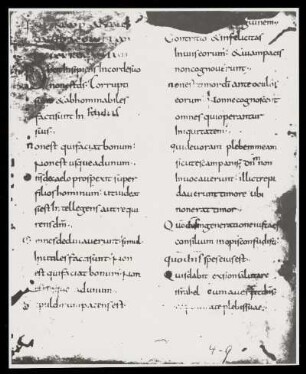 Dixit insipiens in corde suo
non est ds Corrupti
sunt & abhominabiles
facti sunt in
suis
non est qui faciat bonum
non est usque ad unum
ns de caelo prospexit super
filios hominum ut uideat
si est intellegens aut requi
rens dm
Omnes declinauerunt simul
inutiles facti sunt non
est qui faciat bonum non
ad unum
Sepulchrum patens est
Contritio & infelicitas
in uiis eorum & uiam pacis
non cognouerunt
non est timor di ante oculos
eorum Nonne cognoscent
omnes qui operantur
iniquitatem
Qui deuorant plebem meam
sicut escam panis dnm non
inuocauerunt illic trepi
dauerunt timore ubi
non erat timor
Quoniam ds in generatione iusta est
consilium inopis confudistis
quo dns spes eius est
Quis dabit ex sion salutare
israhel cum auerterit dns
plebis suae
4-9